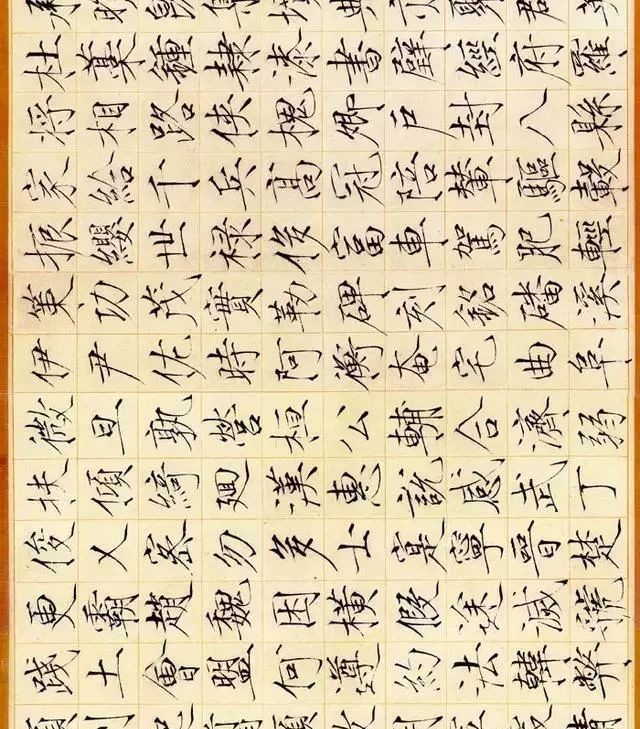 杜稾鍾隸漆書壁經府羅
將相路俠槐卿戶封八縣
家給千兵高冠陪輦驅轂
振纓世禄侈富車駕肥輕
策功茂實勒碑刻銘磻溪
伊尹佐時阿衡奄宅曲阜
微旦孰營桓公輔合濟弱
扶傾綺廻漢惠說感武丁
俊乂密勿多士寔寧晉楚
更霸趙魏困橫假途滅虢
踐土會盟何遵約法韓弊